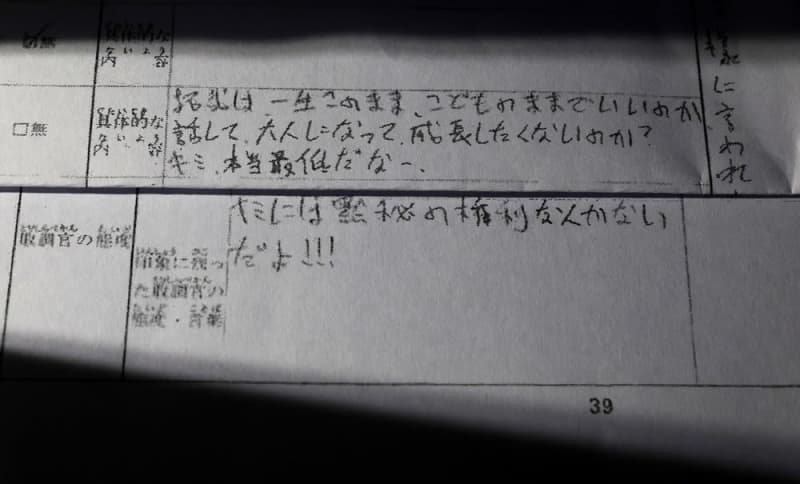 無
具体的な
内容
は 一生このまま、こどものままでいいのか、
□無
具体的な
内容
話して、大人になって、成長したくないのか?
キミ、本当最低だなー、
に言われ
取調官の態度
キミには黙秘の権利なんかない
だよ!!!
印象に残っ
た取調官の
態度・言葉
39